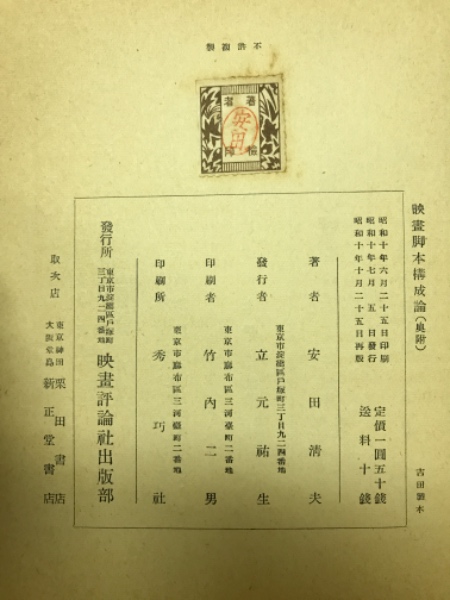 不許複製
著者
檢印
安田
映畫脚本構成論(奥附)
昭和十年六月二十五日印刷
昭和十年七月五日發行
昭和十年十月二十五日再版
定價一圓五十錢
送料十錢
著者 安田淸夫
東京市淀橋區戸塚町三丁目九二四番地
發行者 立元祐生
東京市麻布區三河臺町二番地
印刷者 竹內二男
東京市麻布區三河臺町二番地
印刷所 秀巧社
東京市淀橋區戸塚町三丁目九二四番地
發行所 映畫評論社出版部
取次店
東京神田 栗田書店
大阪堂島 新正堂書店
古田製本